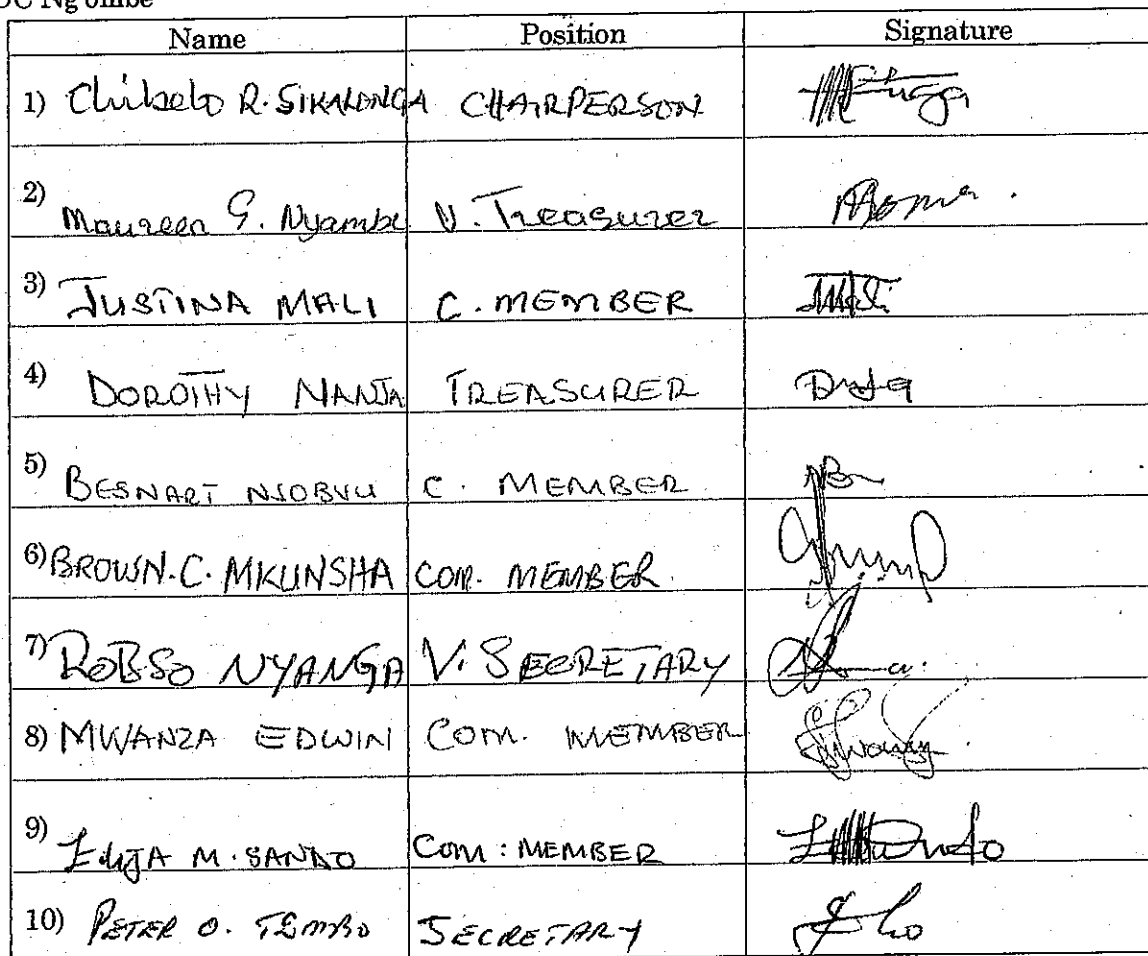 DC Ng'ombe
Name Position Signature
1) Chibelo R. SIKALONGA CHAIRPERSON
2) Maureen G. Nyambe V. Treasurer
3) JUSTINA MALI C. MEMBER
4) DOROTHY NANJA TREASURER
5) BESNART NJOBVU C. MEMBER
6) BROWN.C. MKUNSHA COM. MEMBER.
7) ROBSO NYANGA V. SECRETARY
8) MWANZA EDWIN COM. MEMBER
9) M. SANDO COM: MEMBER
10) PETER O. TEMBO SECRETARY